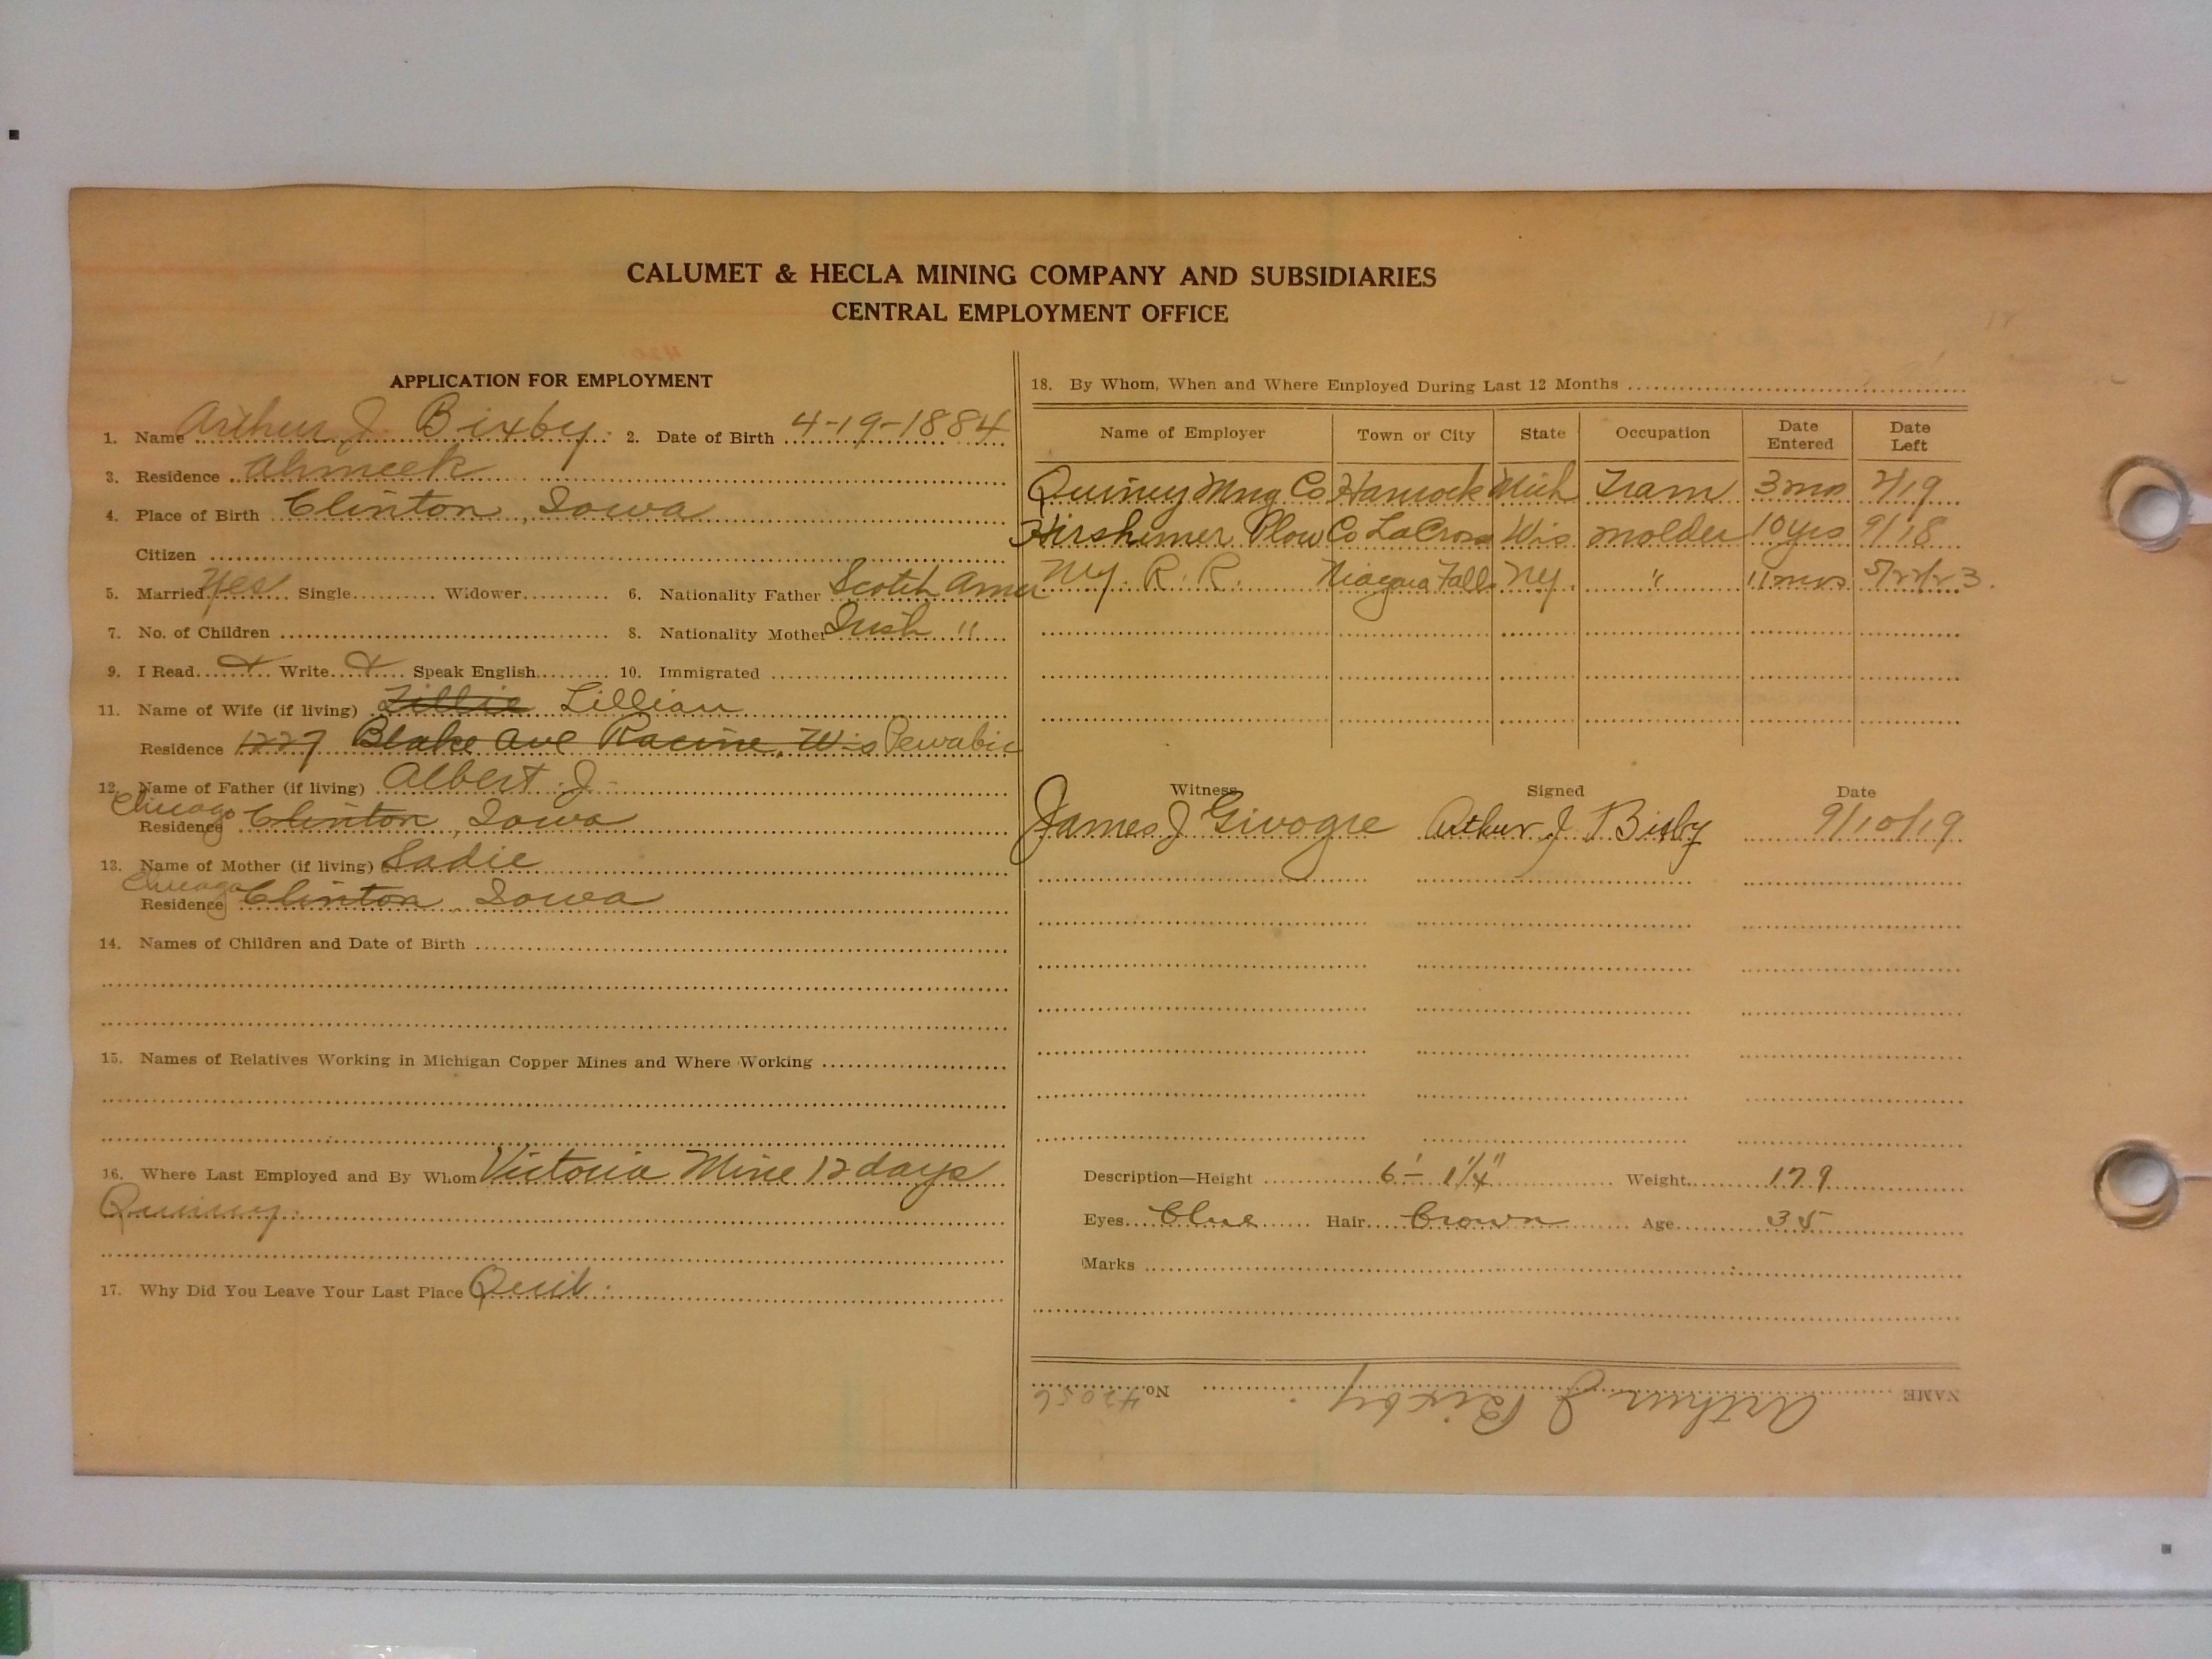 CALUMET & HECLA MINING COMPANY AND SUBSIDIARIES
CENTRAL EMPLOYMENT OFFICE
APPLICATION FOR EMPLOYMENT
1. Name Arthur J. Bixby. 2. Date of Birth 4-19-1884
3. Residence Ahmeek
4. Place of Birth Clinton, Iowa
Citizen
5. Married Yes Single Widower 6. Nationality Father Scotch Amer
7. No. of Children 8. Nationality Mother Irish "
9. I Read Write Speak English 10. Immigrated
11. Name of Wife (if living) Lillie Lillian
Residence 1227 Blake Ave Racine, Wis Pewabic
12. Name of Father (if living) Albert J.
Chicago
Residence Clinton, Iowa
13. Name of Mother (if living) Sadie
Chicago
Residence Clinton, Iowa
14. Names of Children and Date of Birth
15. Names of Relatives Working in Michigan Copper Mines and Where Working
16. Where Last Employed and By Whom Victoria Mine 12 days
Quincy.
17. Why Did You Leave Your Last Place Quit.
18. By Whom, When and Where Employed During Last 12 Months
Name of Employer Town or City State Occupation Date Entered Date Left
Quincy Mng Co Hancock Mich Tram 3 mos 2/19
Hirshimer Plow Co LaCross Wis molder 10 yrs 9/18
NY. R. R. Niagara Falls NY. " 11 mos 5/22/23.
Witness Signed Date
James J Givogre Arthur J Bixby 9/10/19
Description—Height 6'- 1 1/4" Weight 179
Eyes Blue Hair Brown Age 35
Marks
NAME Arthur J Bixby. No. 42056